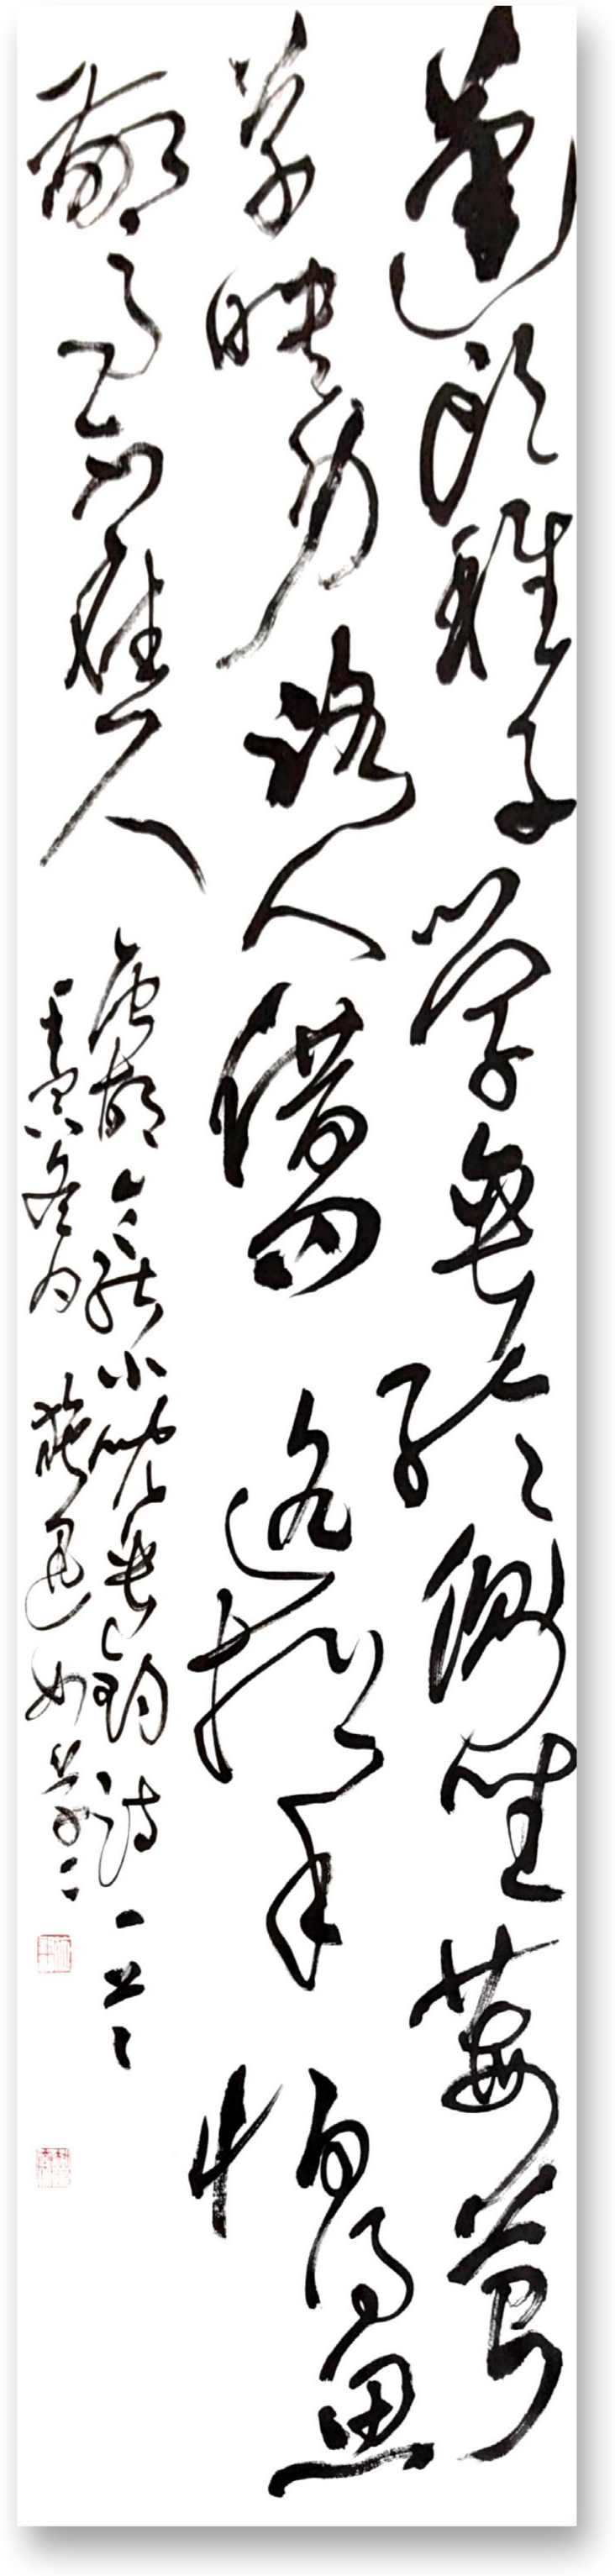 蓬頭稚子學垂綸側坐莓苔
草映身路人借問遙招手怕得魚
驚不應人
唐胡令能小兒垂釣詩一首
壬寅冬月